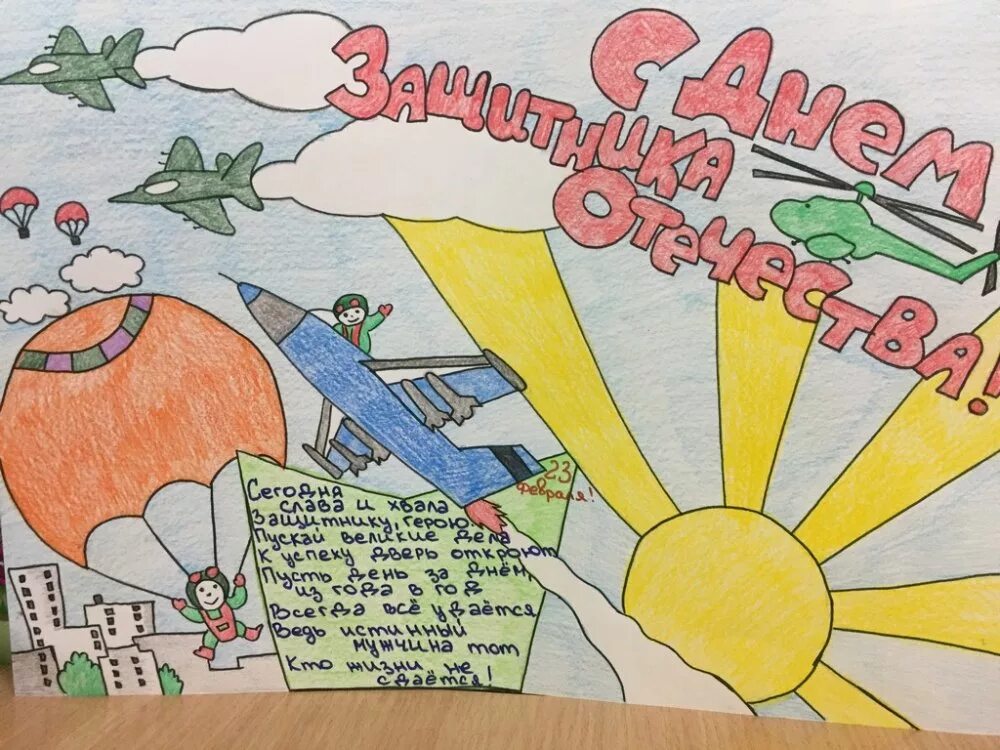 С Днем
Защитника
Отечества!
23
февраля!
Сегодня
слава и хвала
Защитнику, герою.
Пускай великие дела
К успеху дверь откроют
Пусть день за днём,
из года в год
Всегда всё удаётся,
Ведь истинный
мужчина тот
Кто жизни не
сдаётся!